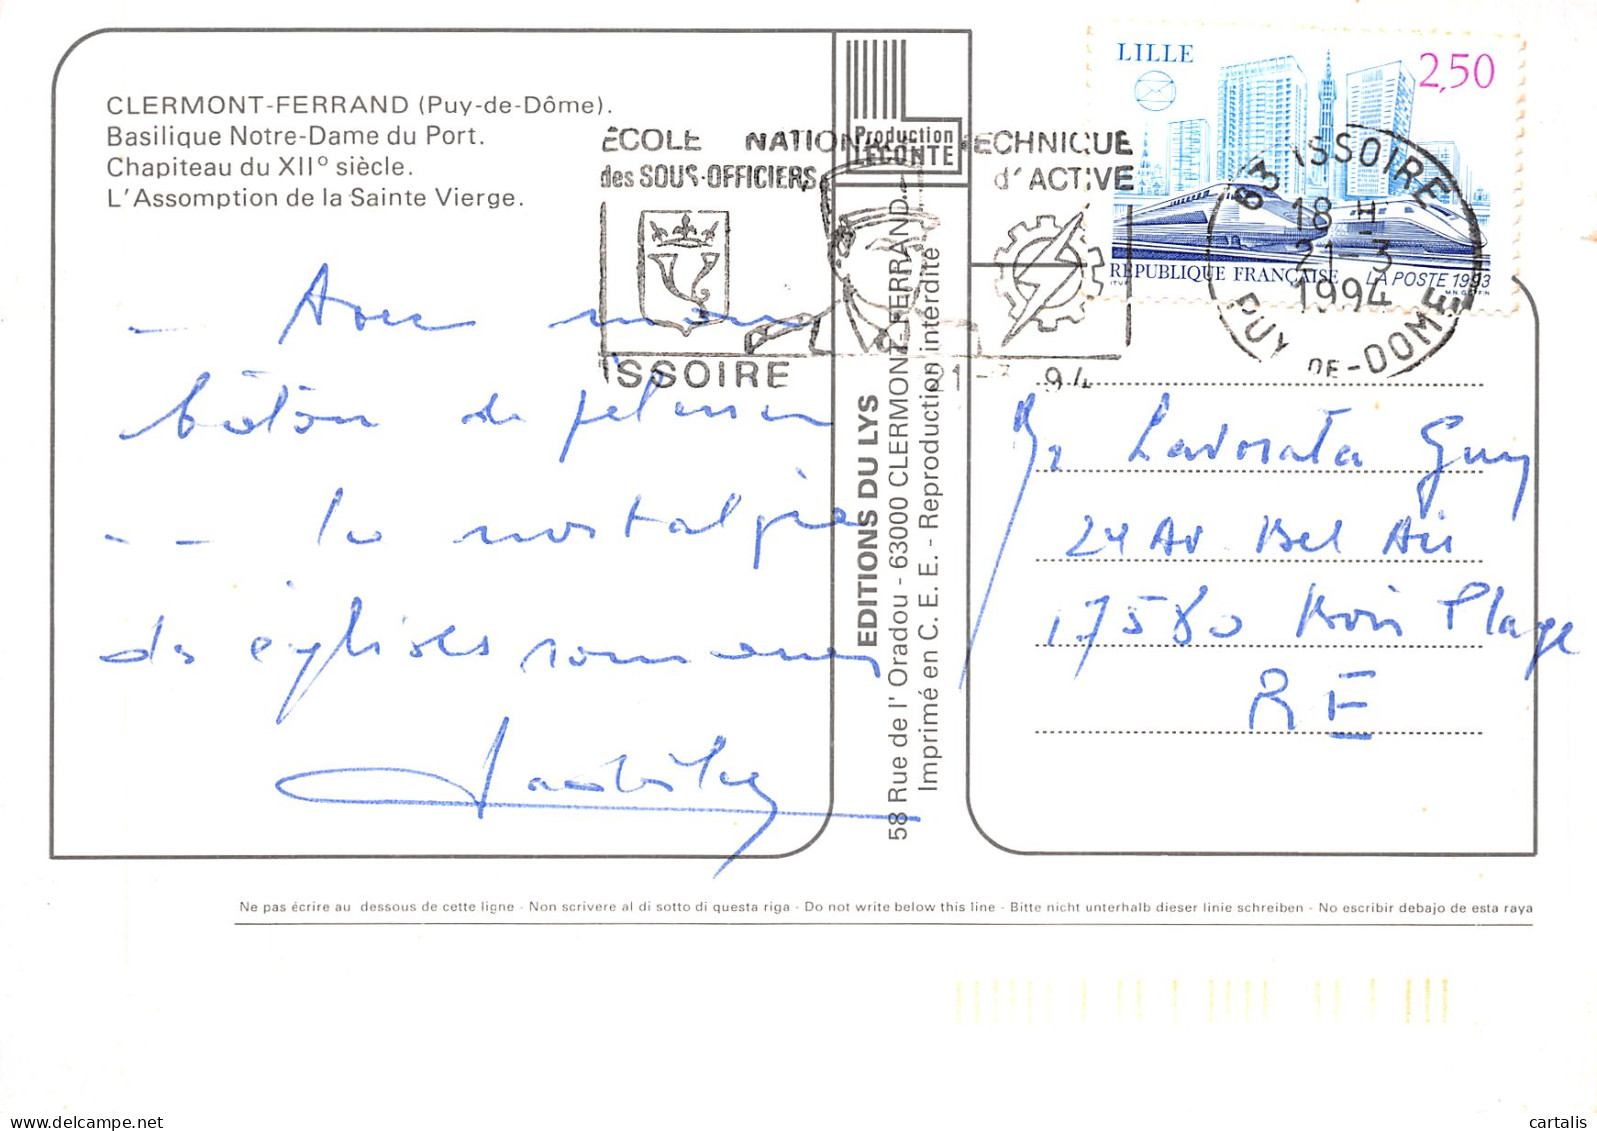 CLERMONT-FERRAND (Puy-de-Dôme).
Basilique Notre-Dame du Port.
Chapiteau du XIIº siècle.
L'Assomption de la Sainte Vierge.
- Avec mon
bâton de pélerin
- - la nostalgie
des églises romanes
Production
LECONTE
EDITIONS DU LYS
58 Rue de l'Oradou - 63000 CLERMONT-FERRAND
Imprimé en C. E. E. - Reproduction interdite
ÉCOLE NATIONALE TECHNIQUE
des SOUS-OFFICIERS d'ACTIVE
ISSOIRE
21-3 94
LILLE
2,50
REPUBLIQUE FRANÇAISE
LA POSTE 1993
63 ISSOIRE
18 H
21-3
1994
PUY-DE-DOME
Mr Lavorata Guy
24 Av. Bel Air
17580 Bois Plage
RE
Ne pas écrire au dessous de cette ligne - Non scrivere al di sotto di questa riga - Do not write below this line - Bitte nicht unterhalb dieser linie schreiben - No escribir debajo de esta raya
cartalis